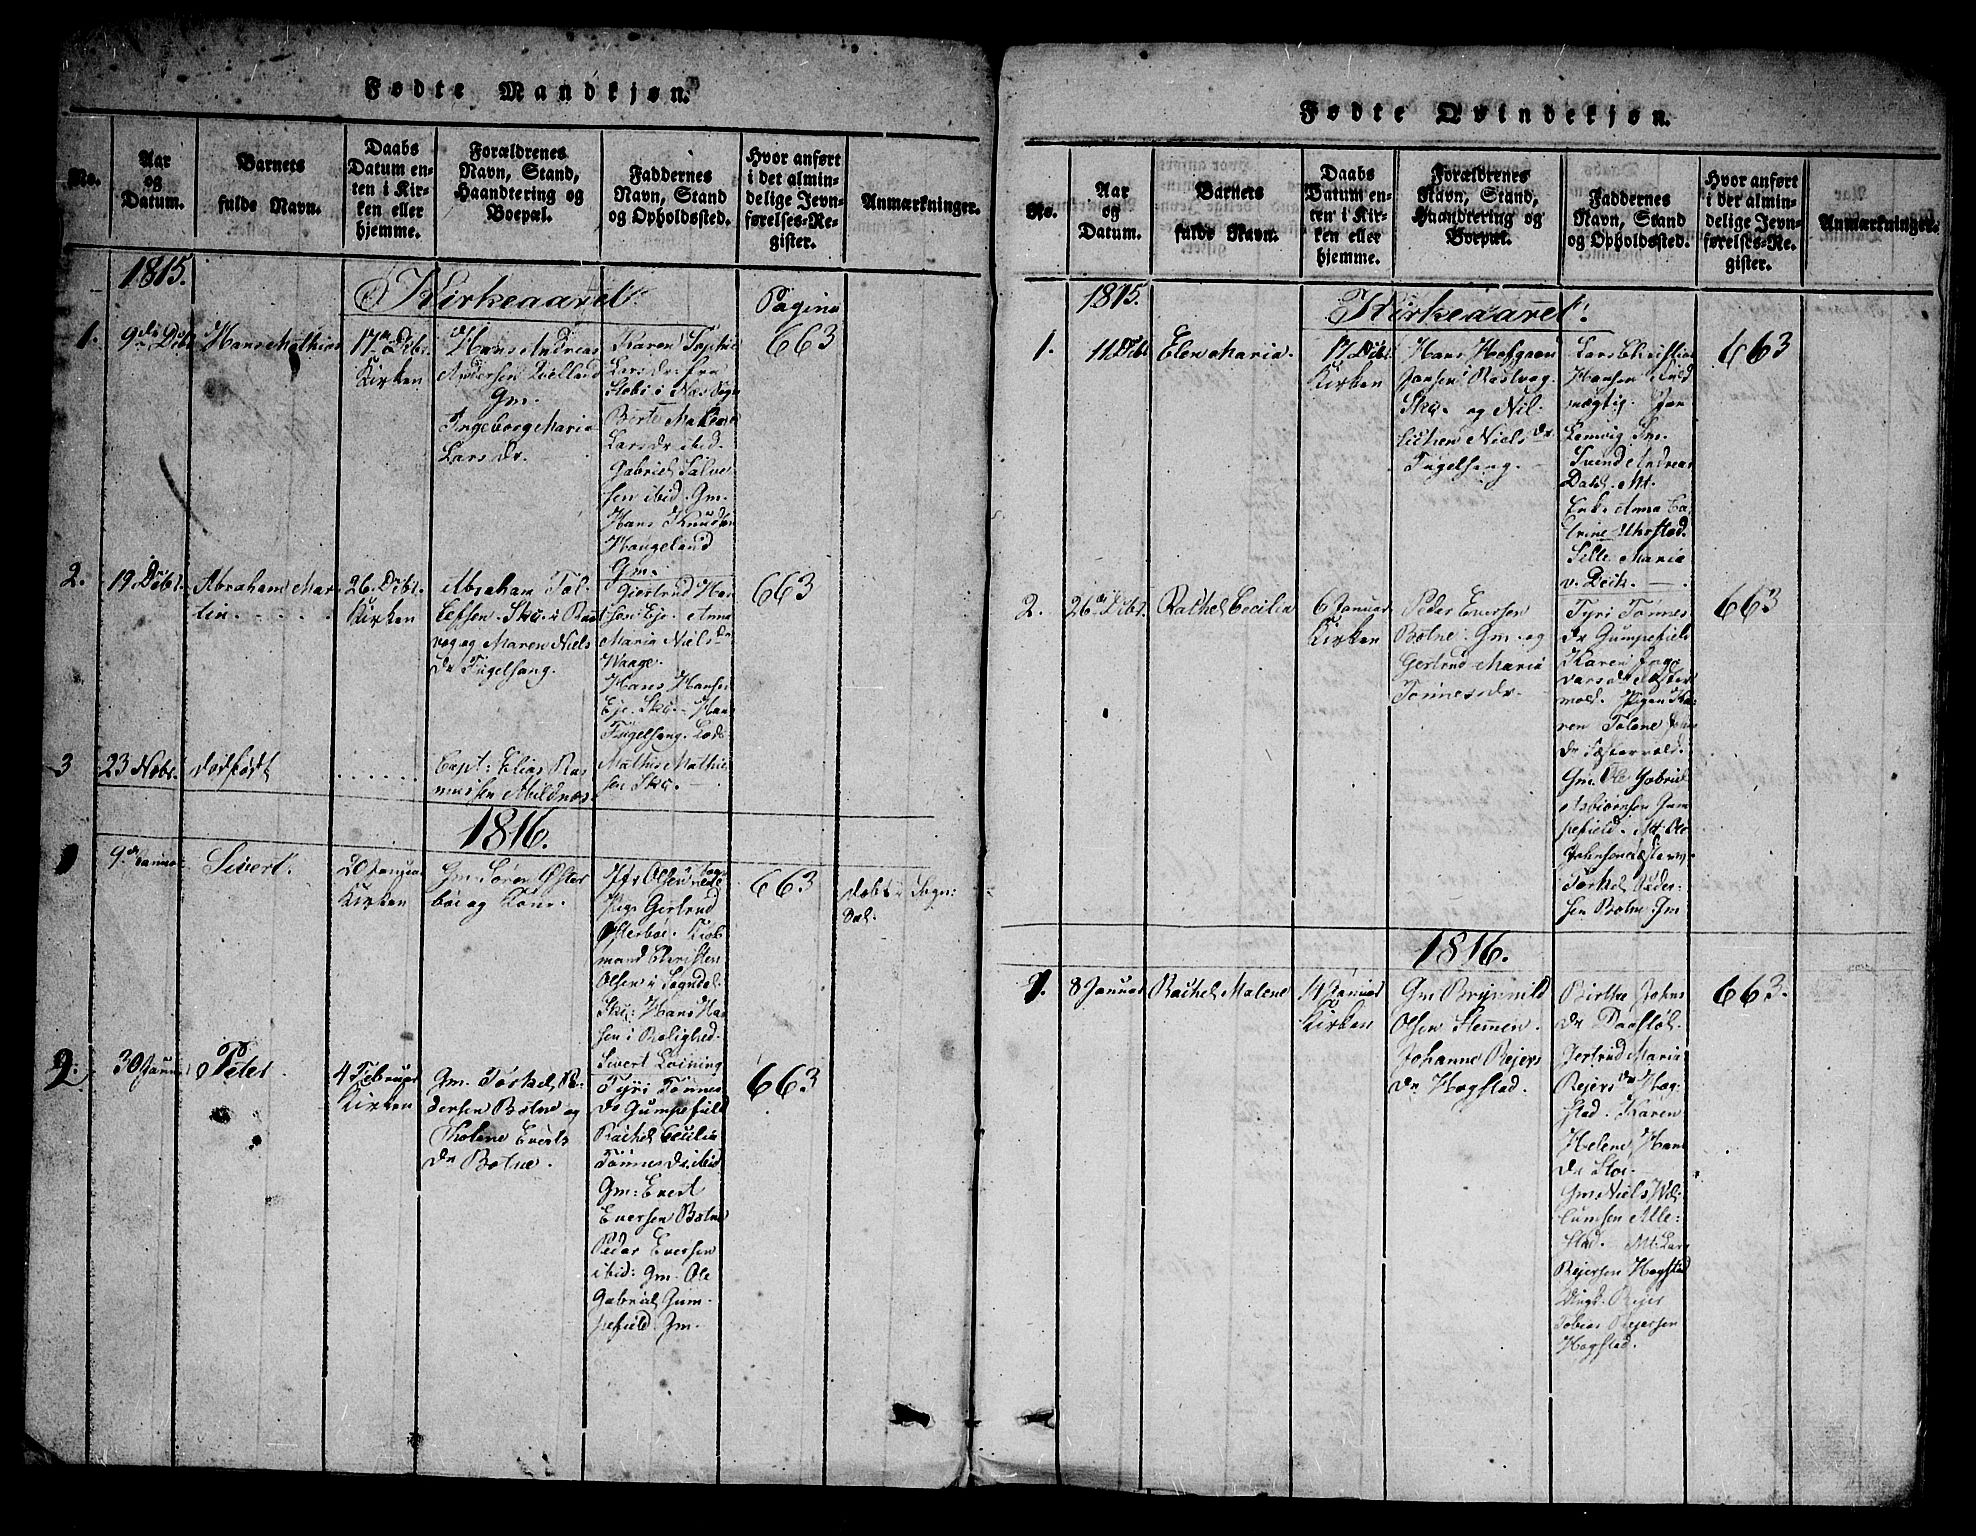 Fødte Mandkjøn.
No.
Aar
og
Datum.
Barnets
fulde Navn.
Daabs
Datum en-
ten i Kir-
ken eller
hjemme.
Forældrenes
Navn, Stand,
Haandtering og
Boepæl.
Faddernes
Navn, Stand
og Opholdssted.
Hvor anført
i det almin-
delige Jevn-
førelses-Re-
gister.
Anmærkninger.
1815.
Kirkeaaret
Pagina
1.
9de Decbr
Hans Mathias
17de Decbr
Kirken
Hans Andreas
Andersen
Gm.
Ingeborg Maria
Lars dr.
Karen Sophie
Lars dr. fra
Birte Malene
Lars dr. ibid.
Gabriel Salve
sen ibid. Gm.
Hans Knudsen
Haugeland
Gm.
663
2.
19 Decbr.
Abraham Mar
tin
26. Decbr.
Kirken
Abraham Tol
lefsen. Skr. i Ras
vog og Maren Niels
dr Fugelsang.
Giertrud Han
Eje. Anna
Maria Niels dr
Waage.
Hans Hansen
Eje. Skr. Hans
Fugelsang. Lods
Mathis Mathie
sen Skr.
663
3
23 Novbr.
dødfødt
Capt: Elias Ras
mussen Mildnæs
1816.
1
9de Januar
Sivert
20 Januar
Kirken
Gm. Søren Øster
bøe og Kone.
Gertrud
Østerbøe. Kiøb
mand Christen
Olsen i Sogndal
Skr: Hans Han
sen i Rolighed.
Sivert
663
døbt i Sogn:
dal.
2.
30 Januar
Peter
4 Februar
Kirken
Gm. Torkel
dersen Botne og
Tholene Everts
dr Botne.
Tyri Tønnes
dr Gumpefield
Rachel Cecilia
Tønnes dr. ibid
Gm: Evert
Eversen Botne
Peder Eversen
ibid: Gm. Ole
Gabriel Gum-
pefield. Gm.
663
Fødte Qvindekjøn.
No.
Aar
og
Datum.
Barnets
fulde Navn.
Daabs
Datum en-
ten i Kir-
ken eller
hjemme.
Forældrenes
Navn, Stand,
Haandtering og
Boepæl.
Faddernes
Navn, Stand
og Opholdssted.
Hvor anført
i det almin-
delige Jevn-
førelses-Re-
gister.
Anmærkninger.
1815.
Kirkeaaret.
1.
11 Decbr
Elen Maria.
17 Decbr
Kirken
Hans
Jansen Rasvog
Skr. og Nil-
Niels dr
Fugelsang.
Lars Christian
Hansen Fuld
mægtig. Jon
Svend Andreas
Dahl. Mt.
Enke Anna Ca
trine
Sille Maria
663
2.
26 Decbr.
Rachel Cecilia
6 Januar
Kirken
Peder Eversen
Botne. Gm. og
Gertrud Maria
Tønnes dr.
Tyri Tønnes
dr Gumpefield
Karen
Pigen Ka
ren Tolene
Gm. Ole Gabriel
Asbiørnsen Gum
pefield. Mt. Ole
Torkel Peder-
sen Botne. Gm
663
1816.
1.
8 Januar
Rachel Malene
14 Januar
Kirken
Gm Brynnild
Olsen Stemen.
Johanne Rejers
dr Hogstad.
Birthe Johns
dr
Gertrud Maria
Rejers dr Hog
stad. Karen
Helene Hans
dr Stoe.
Gm Niels Wil
lumsen Alle-
stad. Mt. Lars
Rejersen Hogstad
Ungk. Rejer
Tobias Rejersen
Hogstad.
663.